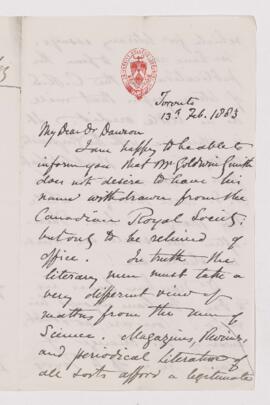 Toronto
13th Feb. 1883
My Dear Dr Dawson
I am happy to be able to
inform you that Mr Goldwin Smith
does not desire to have his
name withdrawn from the
Canadian Royal Society;
but only to be relieved of
office. In truth the
literary men must take a
very different view of
matters from the men of
Science. Magazines, Reviews,
and periodical literature of
all sorts afford a legitimate